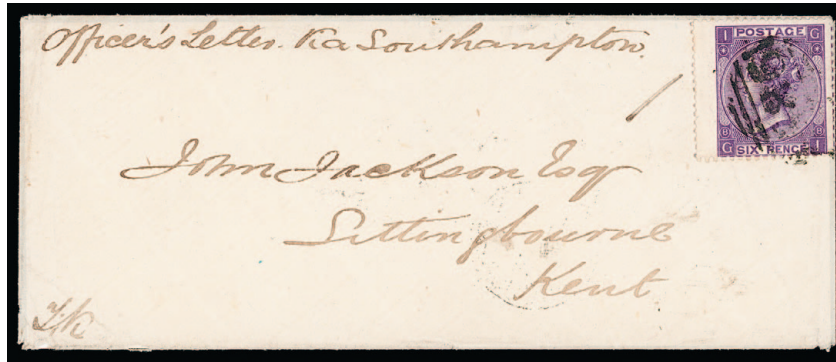 Officer's Letter. Via Southampton.
I POSTAGE G
8 8
G SIX PENCE I
John Jackson Esq
Sittingbourne
Kent